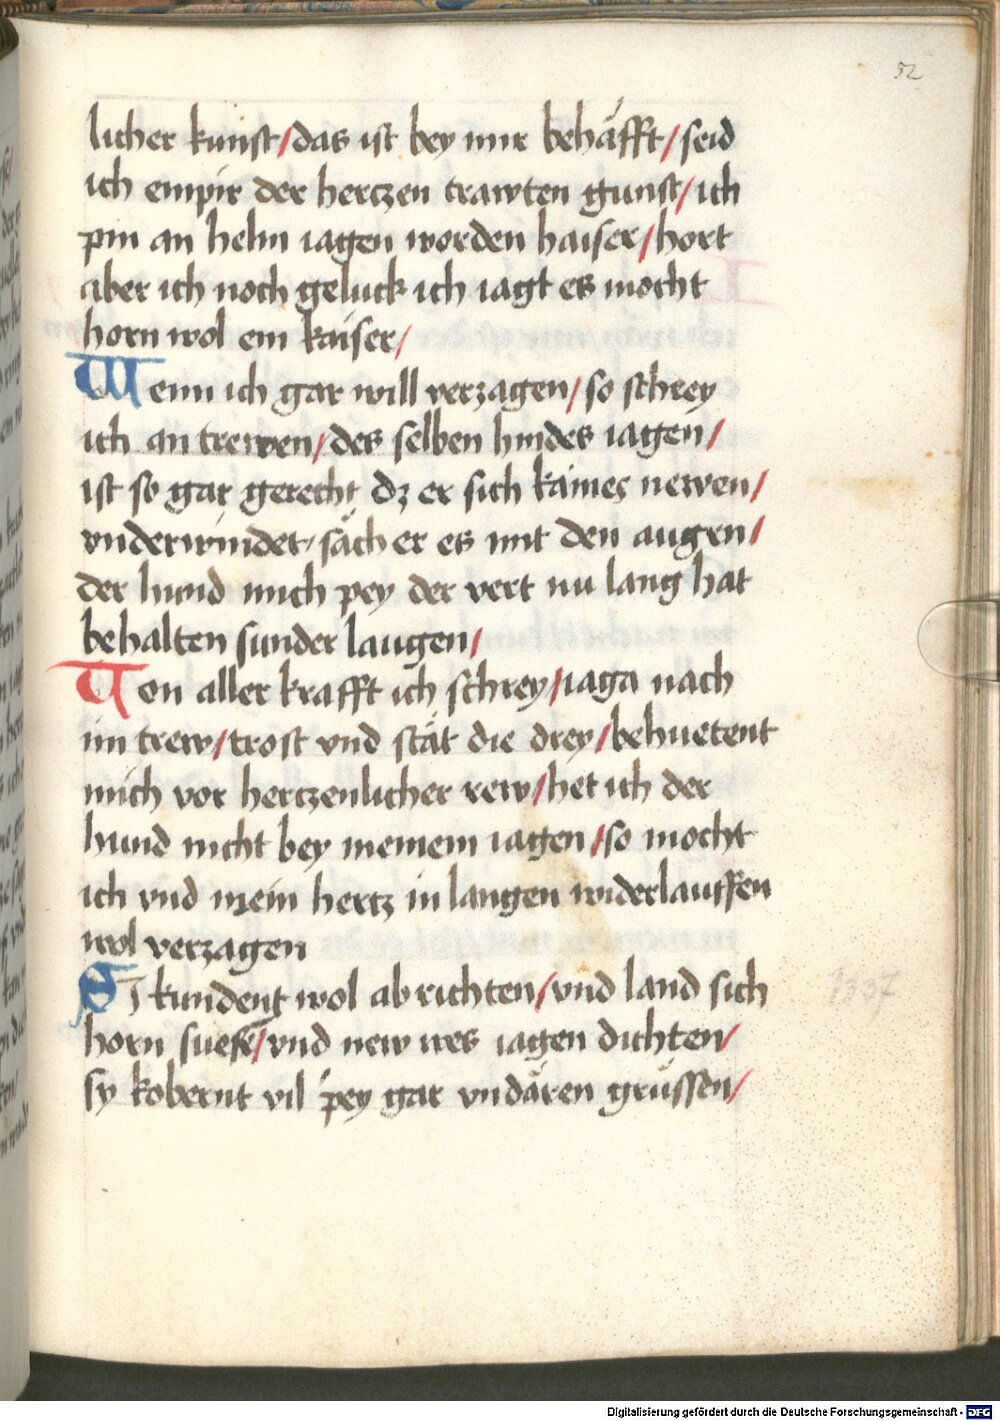 52
licher kunst/das ist bey mir behäfft/seid
ich empir der hertzen trawten gunst/ich
pin an helm iagen worden haiser/hort
aber ich noch geluck ich iagt es mocht
horn wol ein kaiser/
Wenn ich gar will verzagen/so schrey
ich an trewen/des selben hundes iagen/
ist so gar gerecht dz er sich kaines newen/
vnderwindet/säch er es mit den augen/
der hund mich pey der vert nu lang hat
behalten sunder laugen/
Von aller krafft ich schrey/iaga nach
im trew/trost vnd stät die drey/behuetent
mich vor hertzenlicher rew/het ich der
hund nicht bey meinem iagen/so mocht
ich vnd mein hertz in langen widerlauffen
wol verzagen
Si kundent wol ab richten/vnd land sich
horn suesse/vnd new wes iagen dichten/
sy kobernt vil pey gar vndären grüssen/
Digitalisierung gefördert durch die Deutsche Forschungsgemeinschaft - DFG